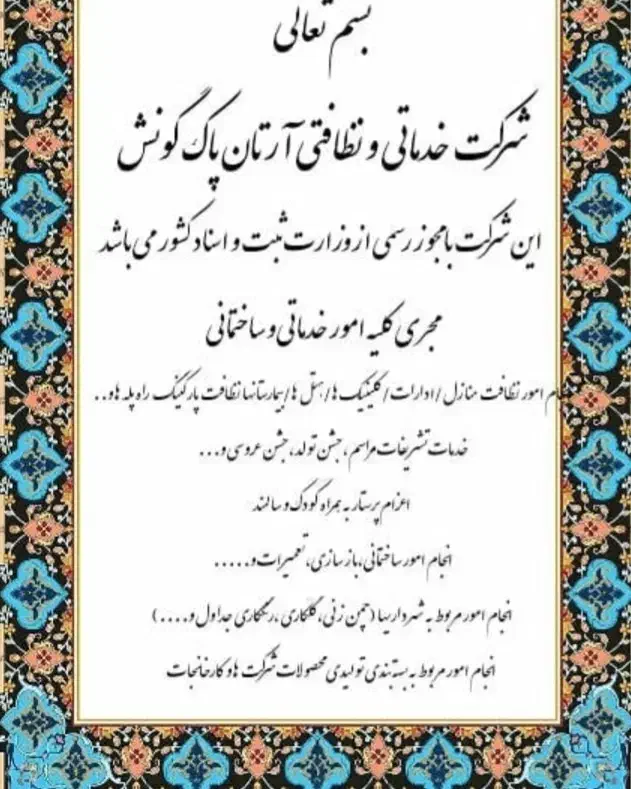 بسم تعالی
شرکت خدماتی و نظافتی آرتان پاک گونش
این شرکت بامجوز رسمی از وزارت ثبت و اسناد کشور می باشد
مجری کلیه امور خدماتی و ساختمانی
امور نظافت منازل /ادارات/کلینیک ها/هتل ها/بیمارستانها نظافت پارکینگ راه پله هاو..
خدمات تشریفات مراسم ،جشن تولد، جشن عروسی و...
اعزام پرستار به همراه کودک و سالمند
انجام امور ساختمانی،بازسازی، تعمیرات و.....
انجام امور مربوط به شهرداریها (چمن زنی، گلکاری ،رنگکاری جداول و....)
انجام امور مربوط به بسته بندی تولیدی محصولات شرکت ها و کارخانجات